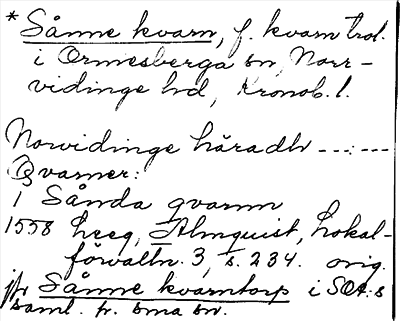 * Sånne kvarn, f. kvarn trol.
i Ormesberga sn, Norr-
vidinge hd, Kronob. l.
Norvidinge häradh --:---
Qvarner:
1 Sånda qvarnn
1558 Lceg, Almquist, Lokal-
förvaltn. 3, s. 234. orig.
jfr Sånne kvarntorp i SOA:s
saml. fr. sma sn.